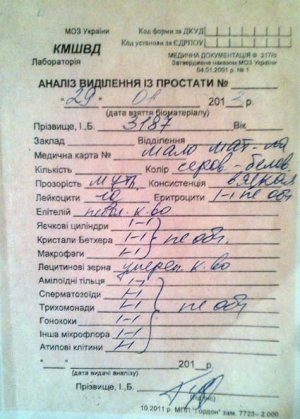 МОЗ України
КМШВД
Лабораторія
Код форми за ДКУД
Код установи за ЄДРПОУ
МЕДИЧНА ДОКУМЕНТАЦІЯ Ф. 217/о
Затверджена наказом МОЗ України
04.01.2001 р. № 1
АНАЛІЗ ВИДІЛЕННЯ ІЗ ПРОСТАТИ №
"29" 01 2013 р.
(дата взяття біоматеріалу)
Прізвище, І.,Б. 3187 Вік
Заклад Відділення
Медична карта № мало мат-ла
Кількість Колір серов-белов
Прозорість мутн Консистенція вязкая
Лейкоцити -10 Еритроцити |-| не обн
Епітелій небол к-во
Яєчкові циліндри |-|
Кристали Бетхера |-| не обн.
Макрофаги |-|
Лецитинові зерна умерен. к-во
Амілоїдні тільця |-|
Сперматозоїди |-|
Трихомонади |-| не обн
Гонококи |-|
Інша мікрофлора |-|
Атипові клітини |-|
" " 201 р.
(дата видачі аналізу)
Прізвище, І.,Б.
10.2011 р. МПП "Гордон" зам. 7723– 2.000